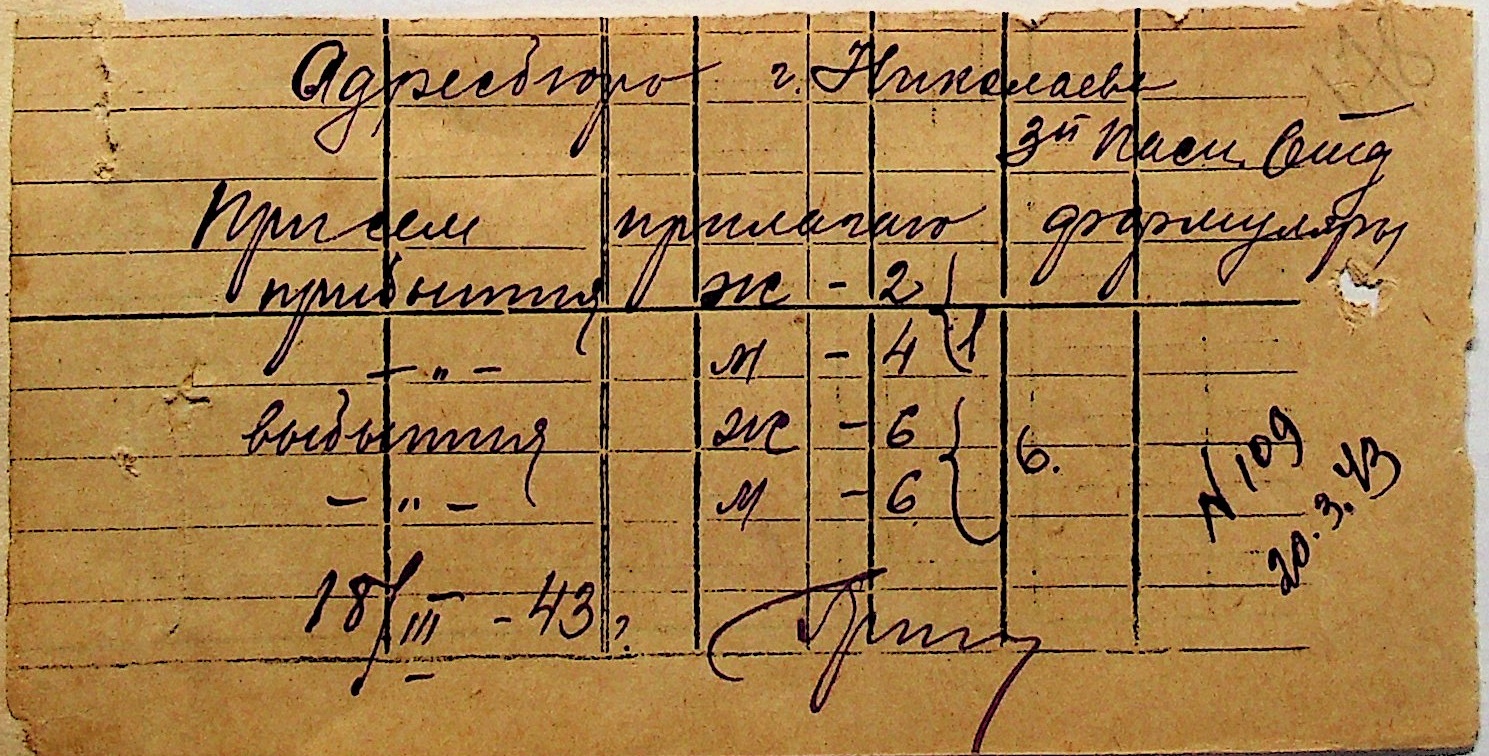 178
Адресбюро г. Николаева
3й Пасп. Отд
При сем прилагаю формуляры
прибытия ж - 2
- " - м - 4 } 1
выбытия ж - 6
- " - м - 6 } 6.
N 109
20.3.43
18/III - 43 г.